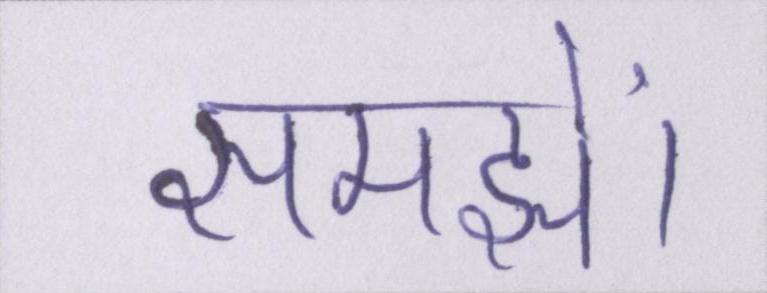 समझें।